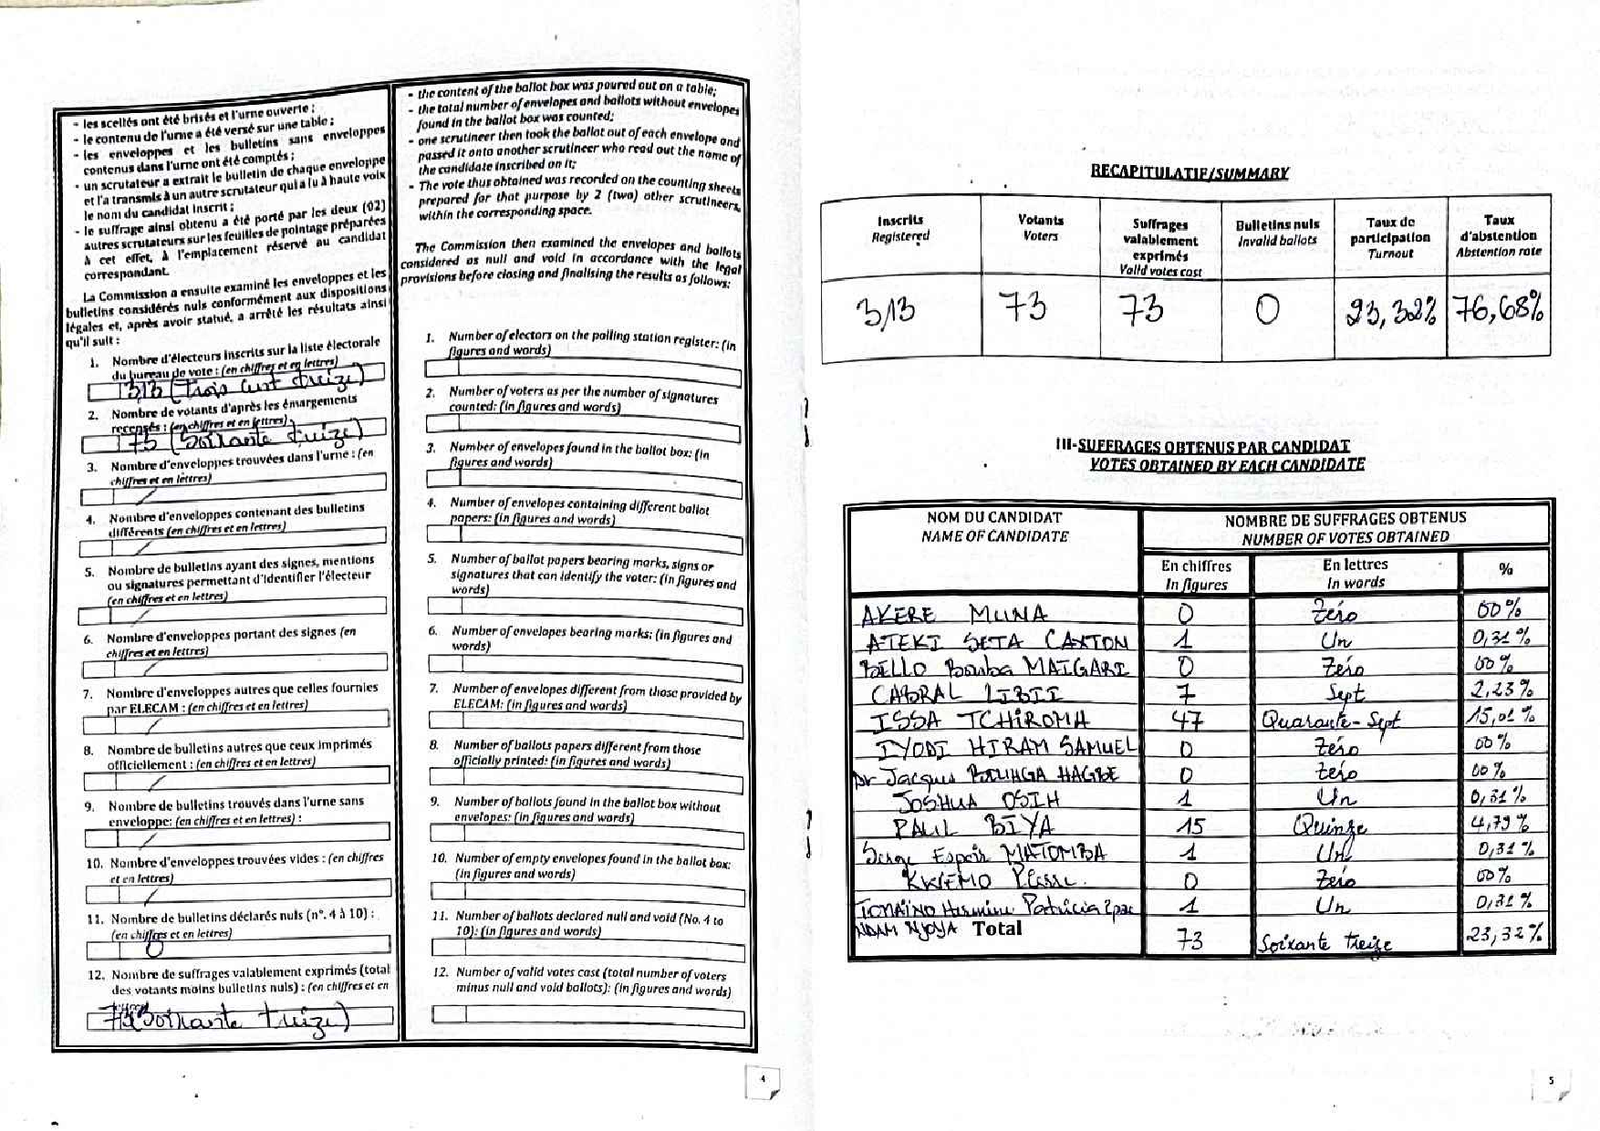 - les scellés ont été brisés et l'urne ouverte ;
- le contenu de l'urne a été versé sur une table ;
- les enveloppes et les bulletins sans enveloppes
contenus dans l'urne ont été comptés ;
- un scrutateur a extrait le bulletin de chaque enveloppe
et l'a transmis à un autre scrutateur qui l'a lu à haute voix
le nom du candidat inscrit ;
- le suffrage ainsi obtenu a été porté par les deux (02)
autres scrutateurs sur les feuilles de pointage préparées
à cet effet, à l'emplacement réservé au candidat
correspondant.
La Commission a ensuite examiné les enveloppes et les
bulletins considérés nuls conformément aux dispositions
légales et, après avoir statué, a arrêté les résultats ainsi
qu'il suit :
1. Nombre d'électeurs inscrits sur la liste électorale
du bureau de vote : (en chiffres et en lettres)
313 (trois cent treize)
2. Nombre de votants d'après les émargements
recensés : (en chiffres et en lettres)
73 (Soixante treize)
3. Nombre d'enveloppes trouvées dans l'urne : (en
chiffres et en lettres)
/
4. Nombre d'enveloppes contenant des bulletins
différents (en chiffres et en lettres)
/
5. Nombre de bulletins ayant des signes, mentions
ou signatures permettant d'identifier l'électeur
(en chiffres et en lettres)
/
6. Nombre d'enveloppes portant des signes (en
chiffres et en lettres)
/
7. Nombre d'enveloppes autres que celles fournies
par ELECAM : (en chiffres et en lettres)
/
8. Nombre de bulletins autres que ceux imprimés
officiellement : (en chiffres et en lettres)
/
9. Nombre de bulletins trouvés dans l'urne sans
enveloppe: (en chiffres et en lettres) :
/
10. Nombre d'enveloppes trouvées vides : (en chiffres
et en lettres)
/
11. Nombre de bulletins déclarés nuls (n°. 4 à 10) :
(en chiffres et en lettres)
0
12. Nombre de suffrages valablement exprimés (total
des votants moins bulletins nuls) : (en chiffres et en
73 (Soixante treize)
- the content of the ballot box was poured out on a table;
- the total number of envelopes and ballots without envelopes
found in the ballot box was counted;
- one scrutineer then took the ballot out of each envelope and
passed it onto another scrutineer who read out the name of
the candidate inscribed on it;
- The vote thus obtained was recorded on the counting sheets
prepared for that purpose by 2 (two) other scrutineers,
within the corresponding space.
The Commission then examined the envelopes and ballots
considered as null and void in accordance with the legal
provisions before closing and finalising the results as follows:
1. Number of electors on the polling station register: (in
figures and words)
2. Number of voters as per the number of signatures
counted: (in figures and words)
3. Number of envelopes found in the ballot box: (in
figures and words)
4. Number of envelopes containing different ballot
papers: (in figures and words)
5. Number of ballot papers bearing marks, signs or
signatures that can identify the voter: (in figures and
words)
6. Number of envelopes bearing marks: (in figures and
words)
7. Number of envelopes different from those provided by
ELECAM: (in figures and words)
8. Number of ballots papers different from those
officially printed: (in figures and words)
9. Number of ballots found in the ballot box without
envelopes: (in figures and words)
10. Number of empty envelopes found in the ballot box:
(in figures and words)
11. Number of ballots declared null and void (No. 4 to
10): (in figures and words)
12. Number of valid votes cost (total number of voters
minus null and void ballots): (in figures and words)
4
RECAPITULATIF/SUMMARY
Inscrits Registered
Votants Voters
Suffrages valablement exprimés Valid votes cost
Bulletins nuls Invalid ballots
Taux de participation Turnout
Taux d'abstention Abstention rate
313 73 73 0 23,32% 76,68%
III-SUFFRAGES OBTENUS PAR CANDIDAT
VOTES OBTAINED BY EACH CANDIDATE
NOM DU CANDIDAT NOMBRE DE SUFFRAGES OBTENUS
NAME OF CANDIDATE NUMBER OF VOTES OBTAINED
En chiffres En lettres %
In figures In words
AKERE MUNA 0 Zéro 00%
ATEKI SETA CAXTON 1 Un 0,31%
BELLO Bouba MAIGARI 0 Zéro 00%
CABRAL LIBII 7 Sept 2,23%
ISSA TCHIROMA 47 Quarante-Sept 15,01%
IYODI HIRAM SAMUEL 0 Zéro 00%
Dr Jacques BOUHGA HAGBE 0 Zéro 00%
JOSHUA OSIH 1 Un 0,31%
PAUL BIYA 15 Quinze 4,79%
Serge Espoir MATOMBA 1 Un 0,31%
KWEMO Pierre 0 Zéro 00%
TOMAINO Hermine Patricia épse 1 Un 0,31%
NDAM NJOYA Total 73 Soixante treize 23,32%
5